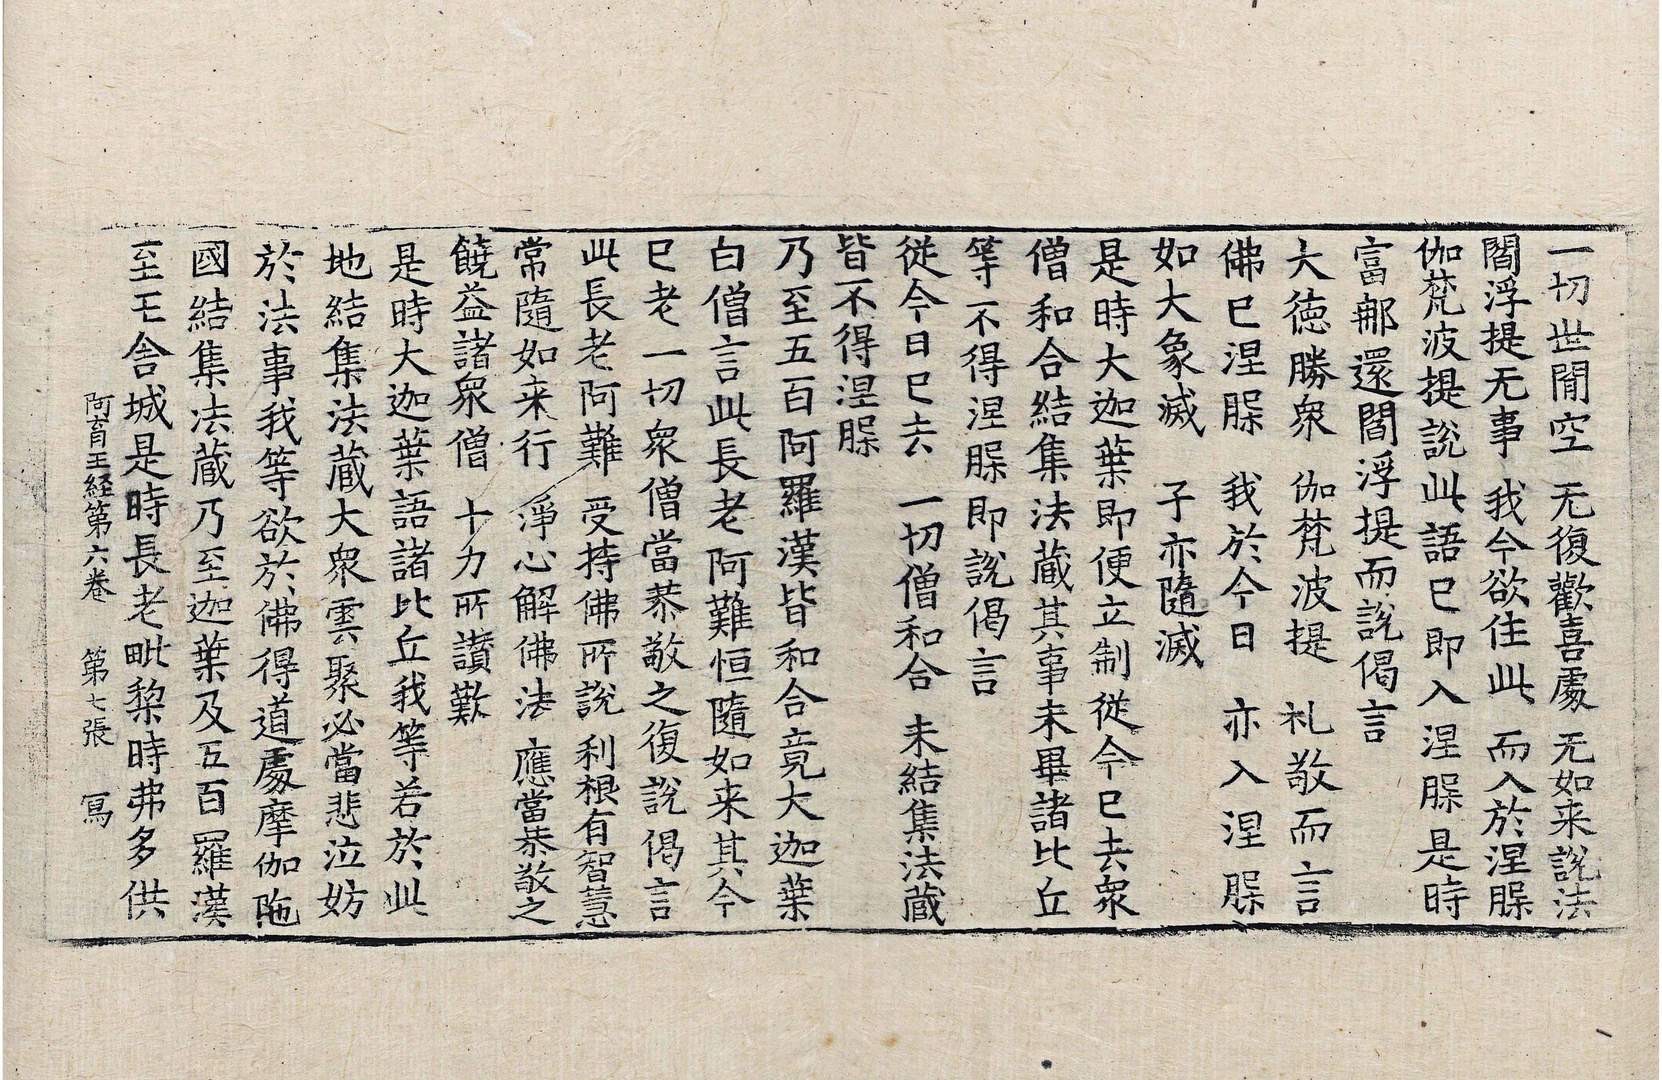 一切世閒空　无復歡喜處　无如来說法
閻浮提无事　我今欲住此　而入於涅脲
伽梵波提說此語已即入涅脲是時
富郍還閻浮提而說偈言
大徳勝衆　伽梵波提　礼敬而言
佛已涅脲　我於今日　亦入涅脲
如大象滅　子亦隨滅
是時大迦葉即便立制從今已去衆
僧和合結集法蔵其事未畢諸比丘
等不得涅脲即說偈言
從今日已去　一切僧和合　未結集法蔵
皆不得涅脲
乃至五百阿羅漢皆和合竟大迦葉
白僧言此長老阿難恒隨如来其今
已老一切衆僧當恭敬之復說偈言
此長老阿難　受持佛所說　利根有智慧
常隨如来行　淨心解佛法　應當恭敬之
饒益諸衆僧　十力所讃歎
是時大迦葉語諸比丘我等若於此
地結集法蔵大衆雲聚必當悲泣妨
於法事我等欲於佛得道處摩伽陁
國結集法蔵乃至迦葉及五百羅漢
至王舎城是時長老毗梨時弗多供
阿育王経第六卷　第七張　冩